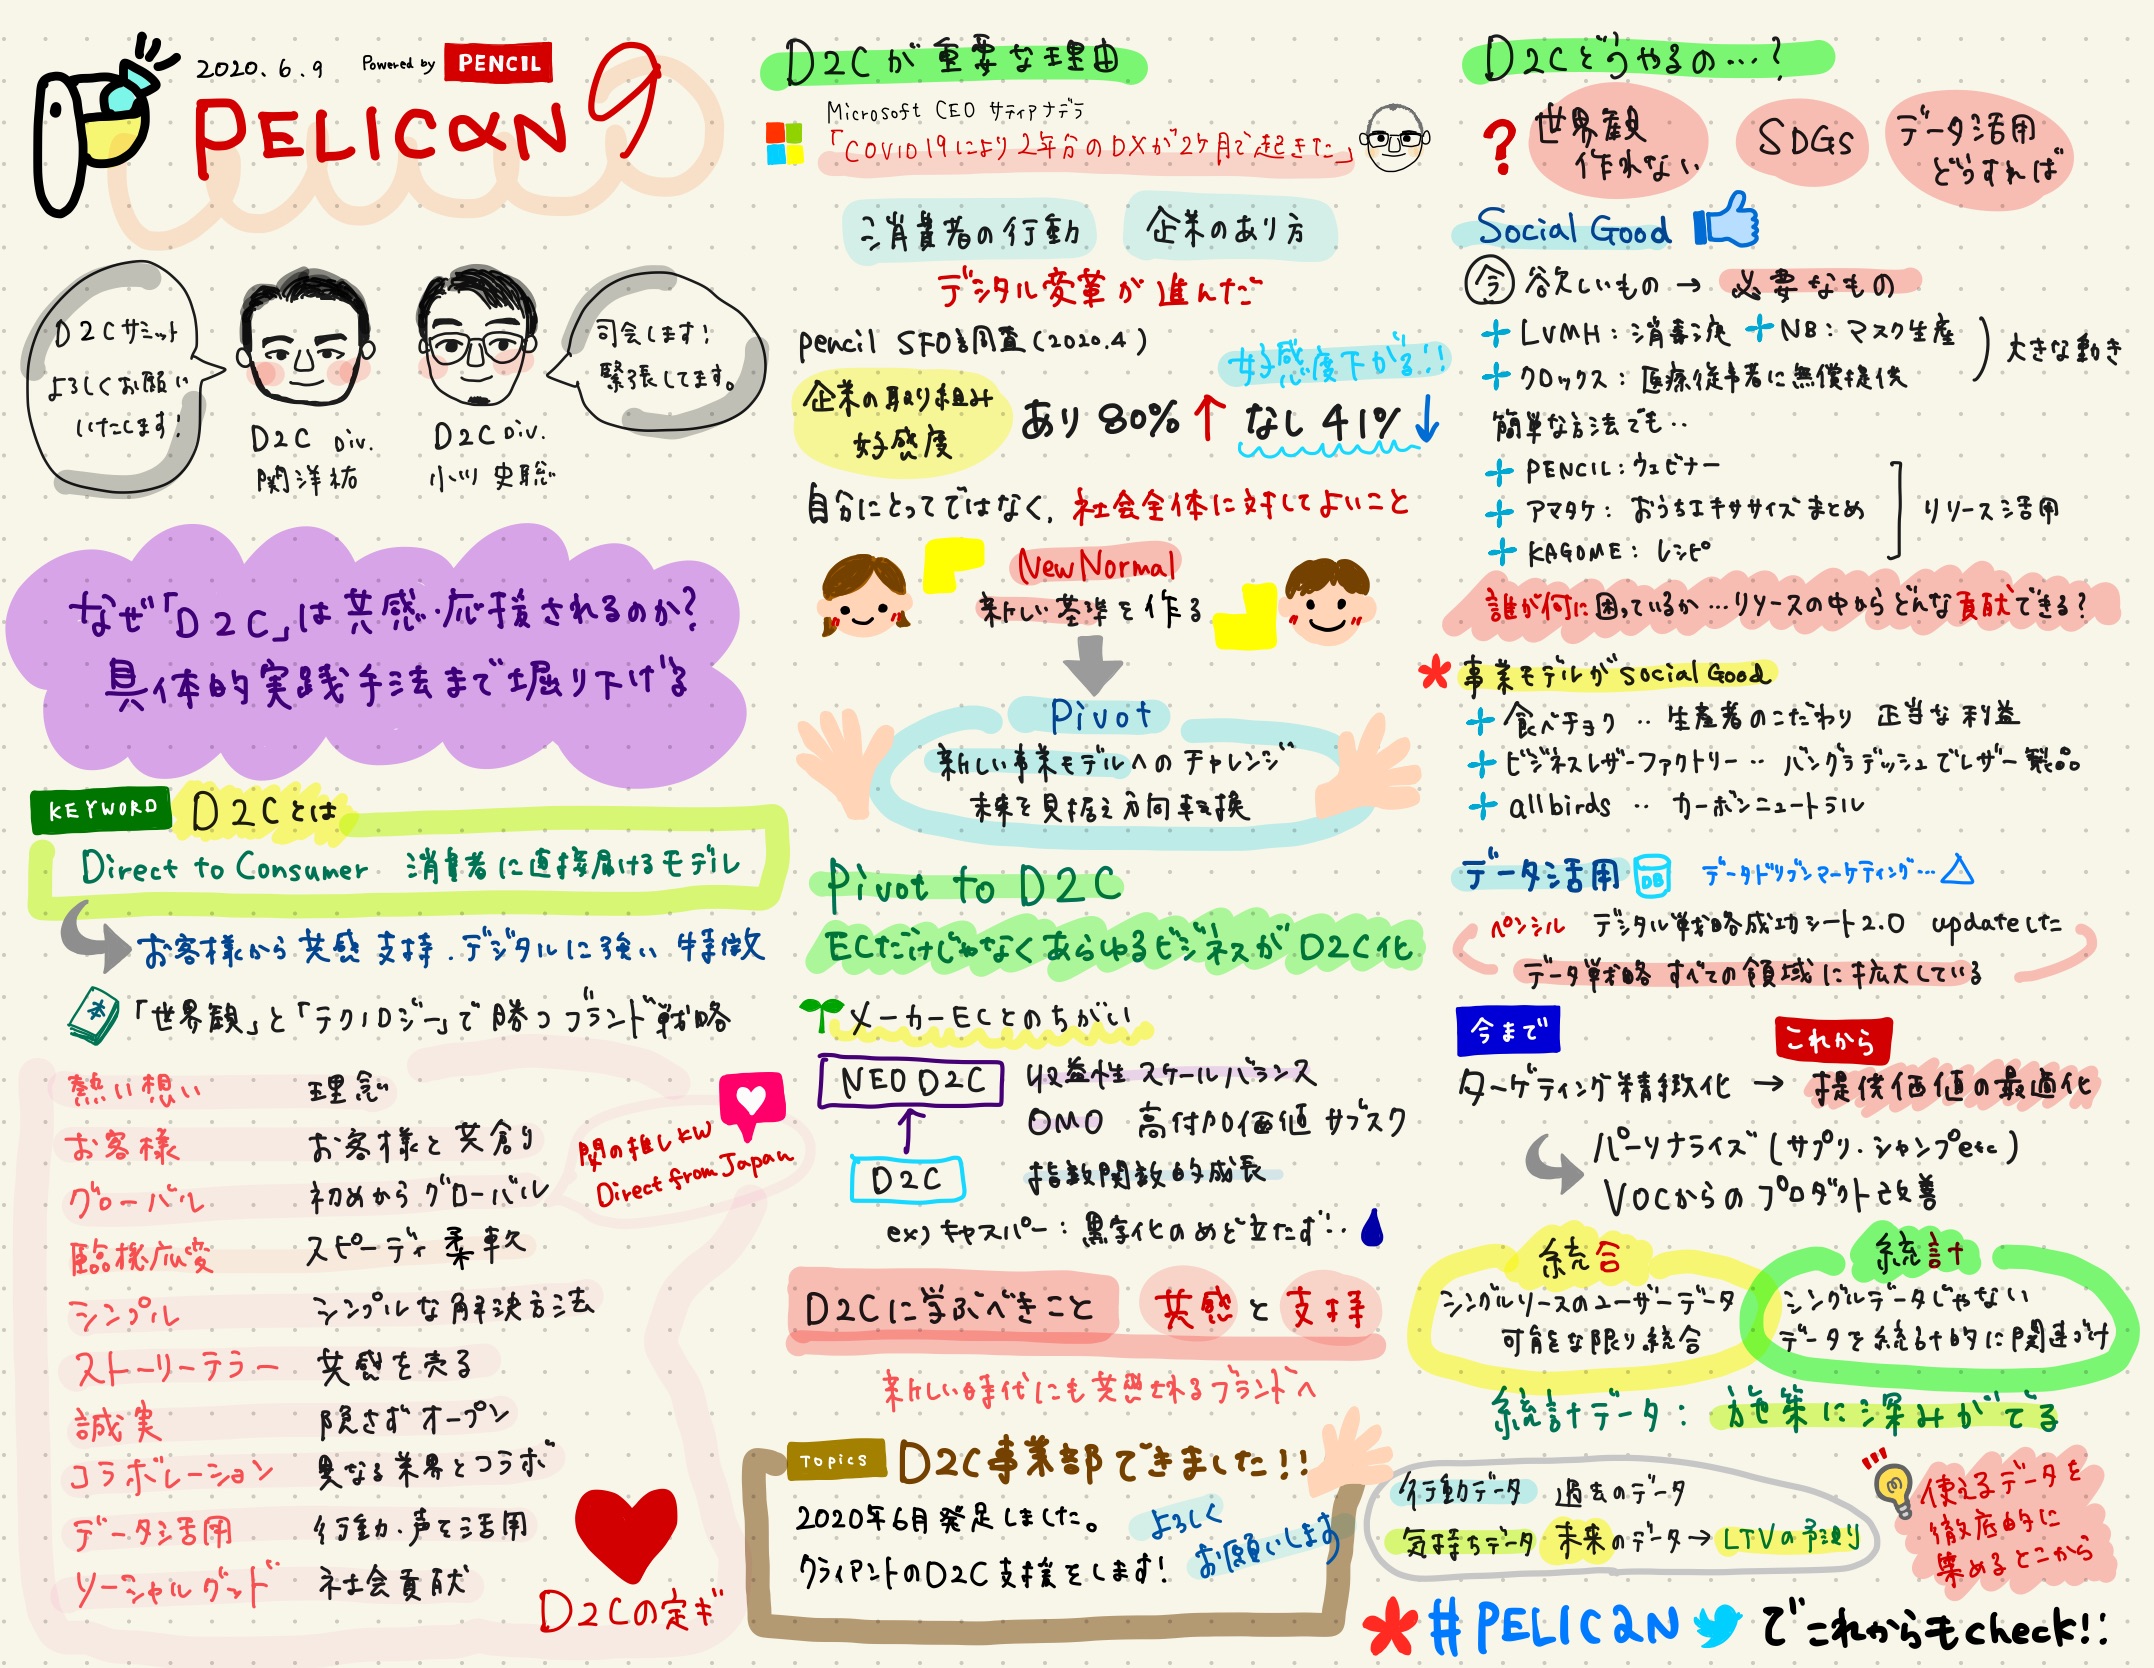 2020.6.9 Powered by PENCIL
PELICAN 9
D2Cサミット
よろしくお願い
いたします!
D2C Div.
関洋祐
D2C Div.
小川 史聡
司会します!
緊張してます。
なぜ「D2C」は共感・応援されるのか?
具体的実践手法まで堀り下げる
KEYWORD D2Cとは
Direct to Consumer 消費者に直接届けるモデル
お客様から共感 支持.デジタルに強い 特徴
本 「世界観」と「テクノロジー」で勝つブランド戦略
熱い想い 理念
お客様 お客様と共創り
グローバル 初めからグローバル
臨機応変 スピーディ 柔軟
シンプル シンプルな解決方法
ストーリーテラー 共感を売る
誠実 隠さずオープン
コラボレーション 異なる業界とコラボ
データ活用 行動・声を活用
ソーシャルグッド 社会貢献
関の推しKW
Direct from Japan
D2Cの定ギ
D2Cが重要な理由
Microsoft CEO サティアナデラ
「COVID19により2年分のDXが2ケ月で起きた」
消費者の行動 企業のあり方
デジタル変革が進んだ
pencil SFO調査(2020.4)
好感度下がる!!
企業の取り組み
好感度
あり 80%↑ なし 41%↓
自分にとってではなく, 社会全体に対してよいこと
New Normal
新しい基準を作る
Pivot
新しい事業モデルへのチャレンジ
未来を見据え方向転換
Pivot to D2C
ECだけじゃなくあらゆるビジネスがD2C化
メーカーECとのちがい
NEO D2C 収益性 スケールバランス
OMO 高付加価値 サブスク
D2C 指数関数的成長
ex) キャスパー: 黒字化のめど立たず…
D2Cに学ぶべきこと 共感と支持
新しい時代にも共感されるブランドへ
TOPICS D2C事業部できました!!
2020年6月発足しました。
クライアントのD2C支援をします!
よろしく
お願いします
D2Cどうやるの…?
? 世界観
作れない
SDGs
データ活用
どうすれば
Social Good
今 欲しいもの → 必要なもの
+ LVMH: 消毒液 + NB: マスク生産
+ クロックス: 医療従事者に無償提供
大きな動き
簡単な方法でも..
+ PENCIL: ウェビナー
+ アマタケ: おうちエキササイズまとめ
+ KAGOME: レシピ
リリース活用
誰が何に困っているか…リソースの中からどんな貢献できる?
* 事業モデルがSocial Good
+ 食べチョク .. 生産者のこだわり 正当な利益
+ ビジネスレザーファクトリー .. バングラデッシュでレザー製品
+ allbirds .. カーボンニュートラル
データ活用 DB データドリブンマーケティング…△
ペンシル デジタル戦略成功シート2.0 updateした
データ戦略 すべての領域に拡大している
今まで これから
ターゲティング精緻化 → 提供価値の最適化
パーソナライズ(サプリ.シャンプetc)
VOCからのプロダクト改善
統合
シングルソースのユーザーデータ
可能な限り統合
統計
シングルデータじゃない
データを統計的に関連づけ
統計データ: 施策に深みがでる
行動データ 過去のデータ
気持ちデータ 未来のデータ→LTVの予測り
使えるデータを
徹底的に
集めるとこから
* #PELICAN でこれからもcheck!!